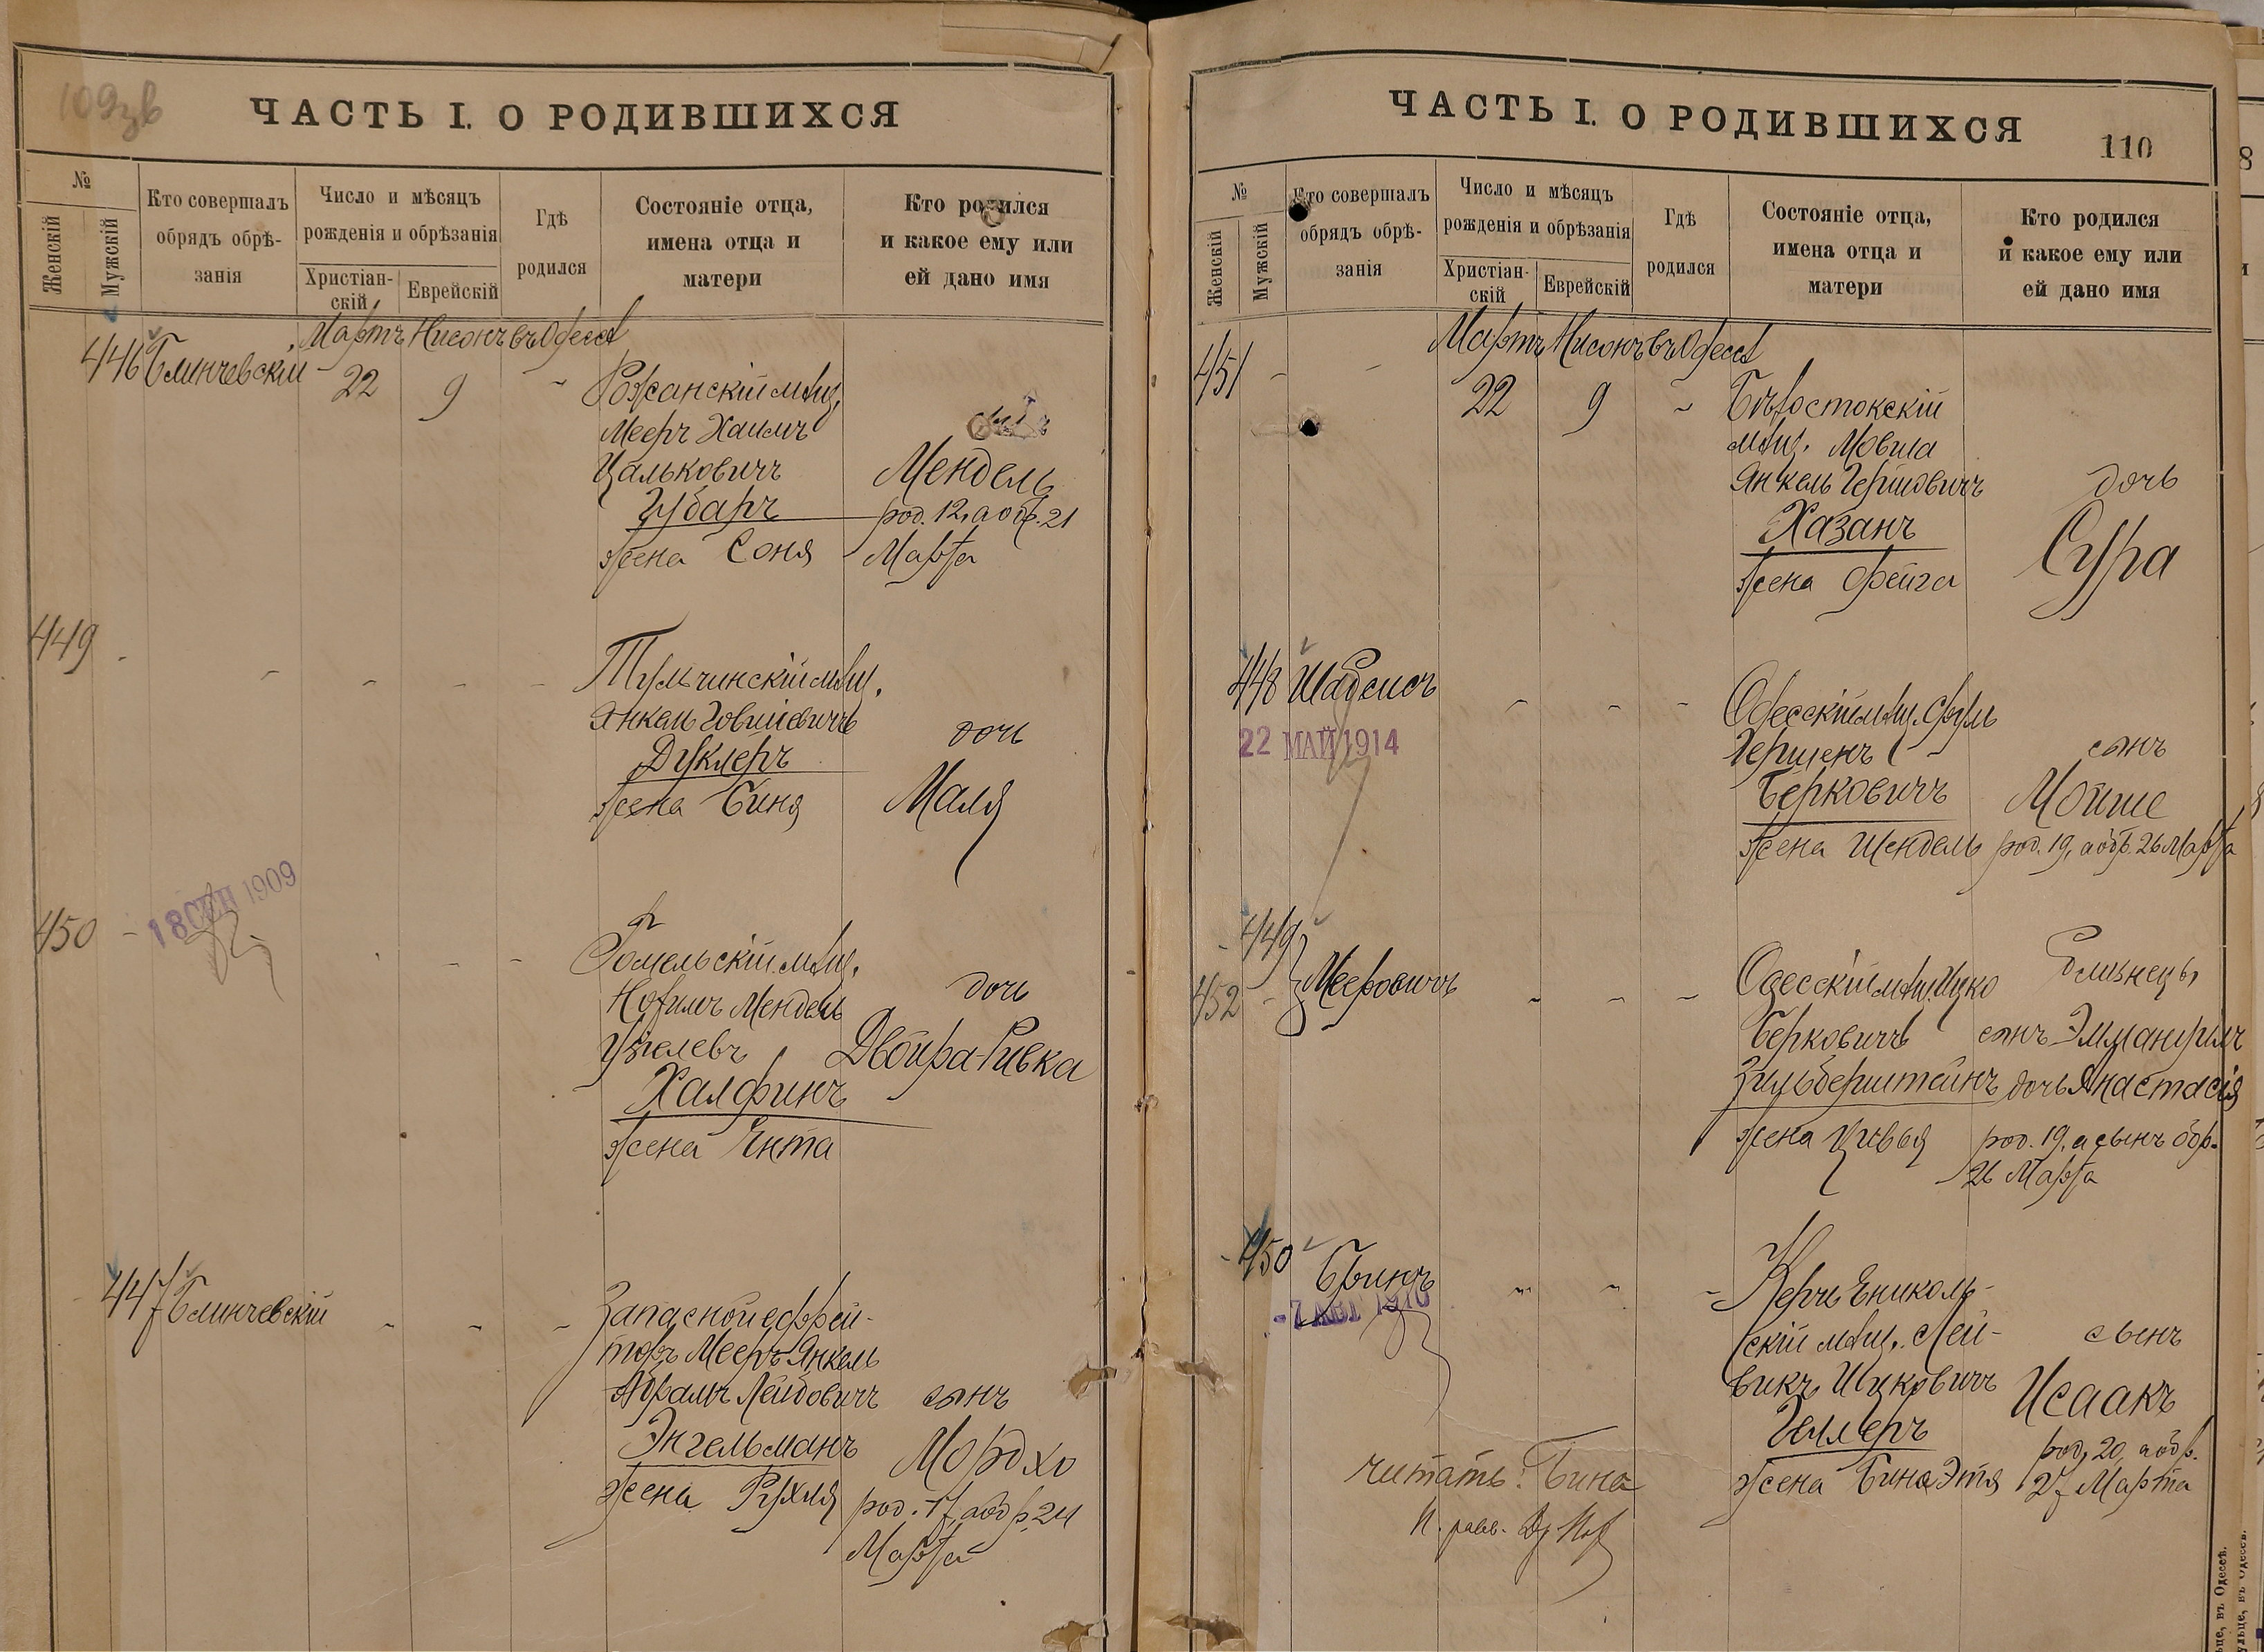 109зв
ЧАСТЬ I. О РОДИВШИХСЯ
№
Женскій
Мужскій
Кто совершалъ
обрядъ обрѣ-
занія
Число и мѣсяцъ
рожденія и обрѣзанія
Христіан-
скій
Еврейскій
Гдѣ
родился
Состояніе отца,
имена отца и
матери
Кто родился
и какое ему или
ей дано имя
Мартъ Нисонъ въ Одессѣ
446 Блинчевскій 22 9
мѣщ.
Мееръ Хаимъ
Цальковичъ
Губаръ
жена Соня
сынъ
Мендель
род. 12, а обр. 21
Марта
449
Тульчинскій мѣщ.
Янкель
Дуклеръ
жена Биня
дочь
Маля
18 СЕН 1909
450
Гомельскій мѣщ.
Нохимъ Мендель
Халфинъ
жена Ента
дочь
Двойра-Ривка
447 Блинчевскій
Запасной ефрей-
торъ Мееръ Янкель
Абрамъ Лейбовичъ
Энгельманъ
жена Рухля
сынъ
Мордхо
род. 17, а обр. 24
Марта
ЧАСТЬ I. О РОДИВШИХСЯ
110
№
Женскій
Мужскій
Кто совершалъ
обрядъ обрѣ-
занія
Число и мѣсяцъ
рожденія и обрѣзанія
Христіан-
скій
Еврейскій
Гдѣ
родился
Состояніе отца,
имена отца и
матери
Кто родился
и какое ему или
ей дано имя
Мартъ Нисонъ въ Одессѣ
451 22 9
Бѣлостокскій
мѣщ. Мовша
Янкель Гершовичъ
Хазанъ
жена Фейга
дочь
Сура
448
22 МАЙ 1914
Одесскій мѣщ.
Гершенъ
Берковичъ
жена Шендель
сынъ
Мойше
род. 19, а обр. 26 Марта
449
452
Мееровичъ
Одесскій мѣщ. Ицко
Берковичъ
Зильберштейнъ
жена Цивья
близнецы,
сынъ Эммануилъ
дочь Анастасія
род. 19, а сынъ обр.
26 Марта
450
-7 АВГ 1910
Керчь Ениколь-
скій мѣщ. Лей-
викъ Ицковичъ
Геллеръ
жена Бина Этя
сынъ
Исаакъ
род. 20, а обр.
27 Марта
читать: Бина